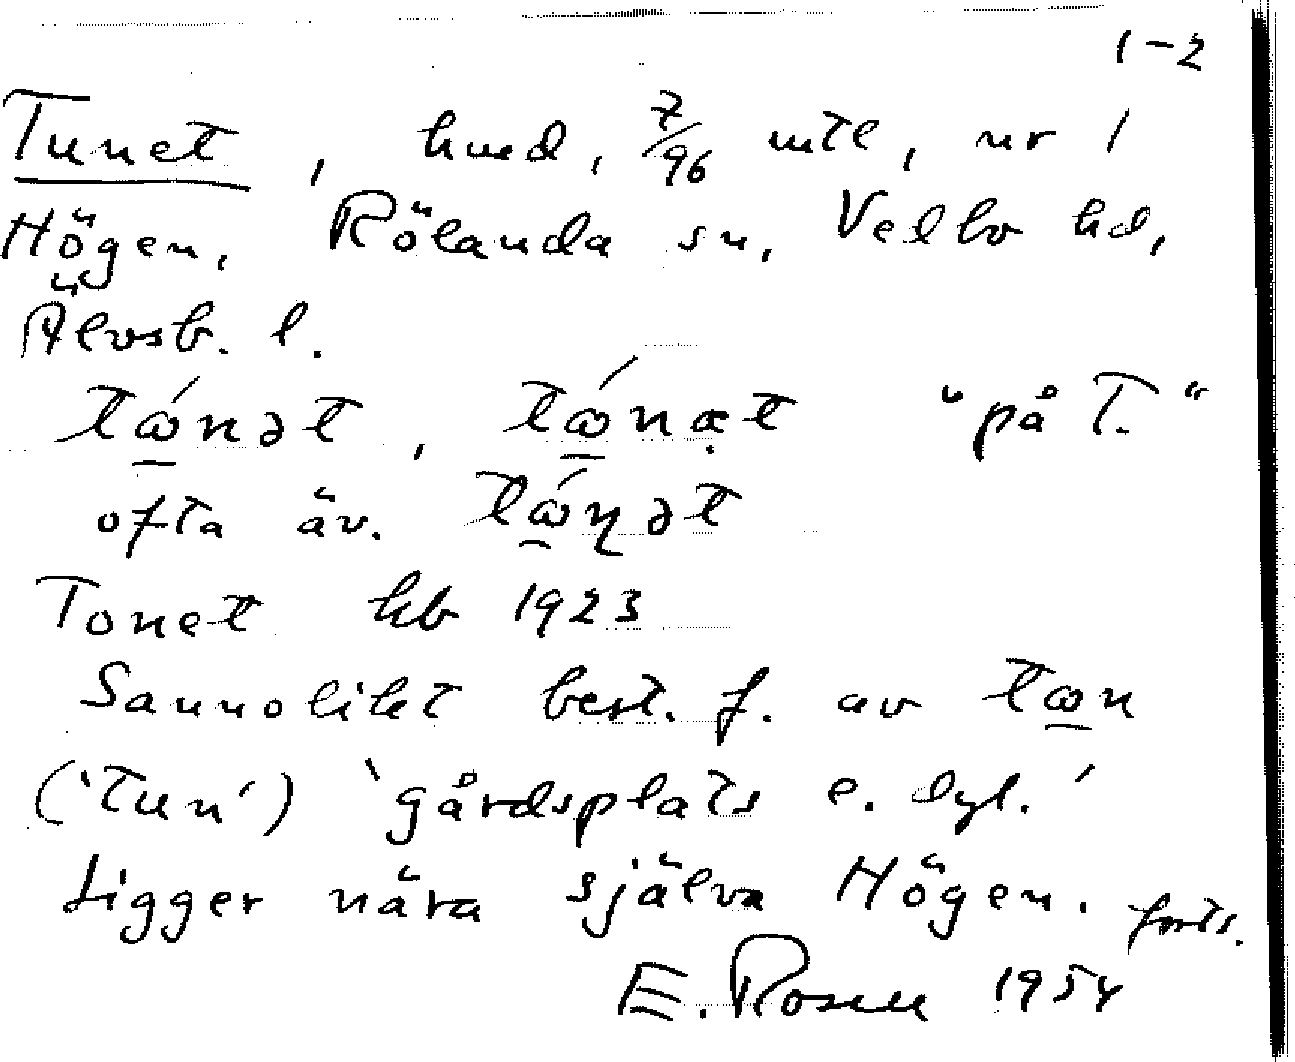 1-2
Tunet, hmd, 7/96 mtl, nr 1
Högen, Rölanda sn, Vedbo hd,
Älvsb. l.
"på T."
ofta äv.
Tonet kb 1923
Sannolikt best. f. av
('tun') 'gårdsplats e. dyl.'
Ligger nära själva Högen. forts.
E. Rosell 1954